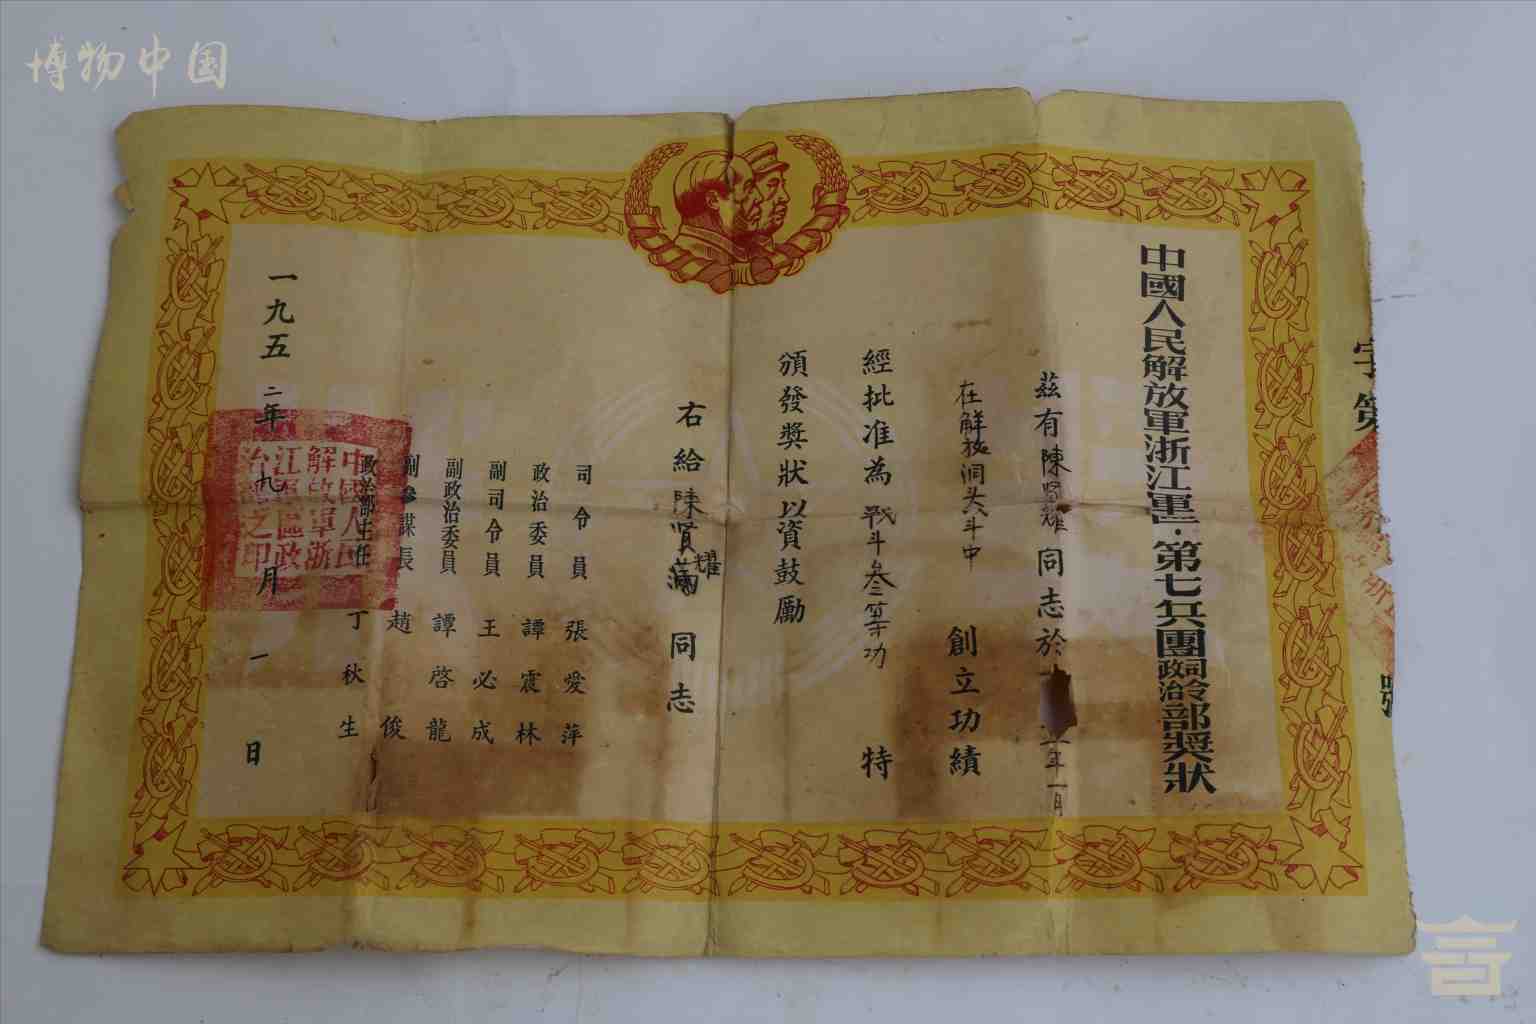 博物中国
字第
號
中國人民解放軍浙江軍區·第七兵團司令政治部獎狀
茲有陳賢耀同志於
年一月
在解放洞头斗中 創立功績
經批准為戰斗叁等功 特
頒發獎狀以資鼓勵
右給陳賢耀 同志
司令員 張愛萍
政治委員 譚震林
副司令員 王必成
副政治委員 譚啓龍
副參謀長 趙俊
政治部主任 丁秋生
一九五二年九月一日
中國人民解放軍浙江軍區政治部之印